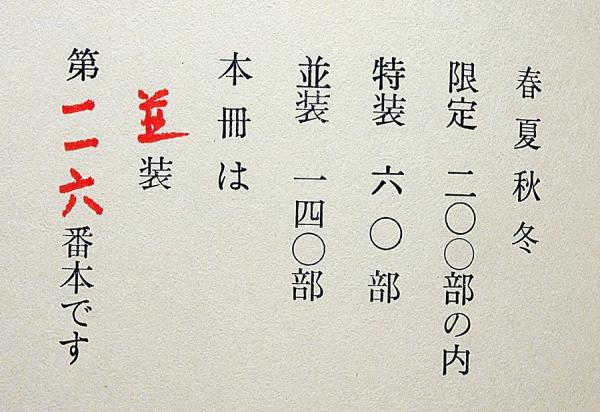 春夏秋冬
限定 二〇〇部の内
特装 六〇部
並装 一四〇部
本冊は
並装
第一二六番本です